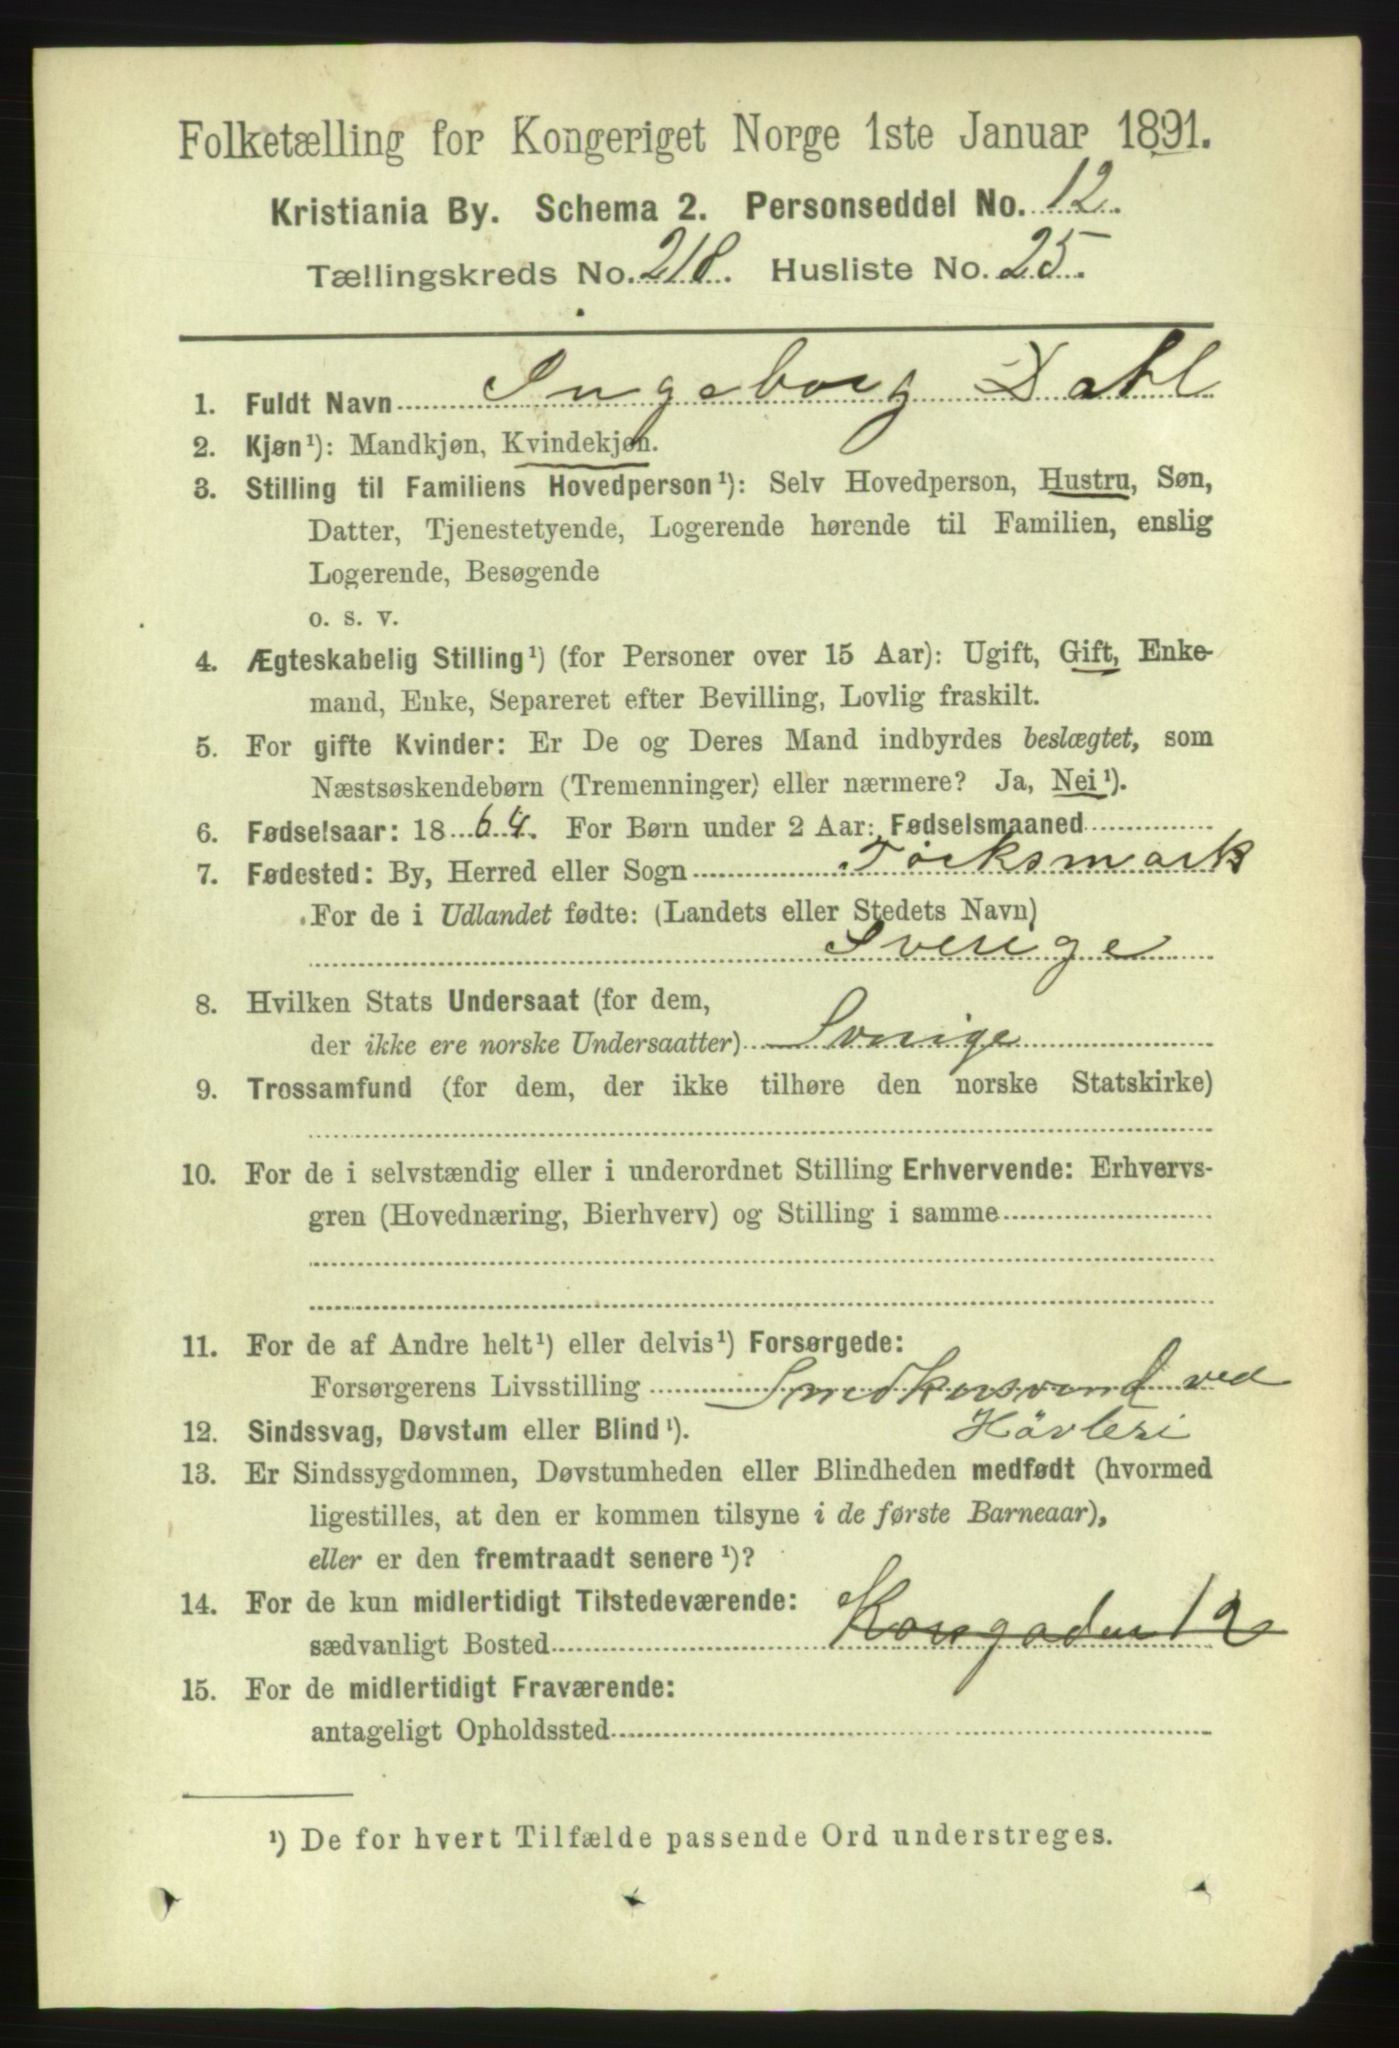 Folketælling for Kongeriget Norge 1ste Januar 1891.
Kristiania By. Schema 2. Personseddel No. 12.
Tællingskreds No. 218. Husliste No. 25.
1. Fuldt Navn Ingeborg Dahl
2. Kjøn¹): Mandkjøn, Kvindekjøn.
3. Stilling til Familiens Hovedperson¹): Selv Hovedperson, Hustru, Søn,
Datter, Tjenestetyende, Logerende hørende til Familien, enslig
Logerende, Besøgende
o. s. v.
4. Ægteskabelig Stilling¹) (for Personer over 15 Aar): Ugift, Gift, Enke-
mand, Enke, Separeret efter Bevilling, Lovlig fraskilt.
5. For gifte Kvinder: Er De og Deres Mand indbyrdes beslægtet, som
Næstsøskendebørn (Tremenninger) eller nærmere? Ja, Nei¹).
6. Fødselsaar: 1864. For Børn under 2 Aar: Fødselsmaaned
7. Fødested: By, Herred eller Sogn Törksmark
For de i Udlandet fødte: (Landets eller Stedets Navn)
Sverige
8. Hvilken Stats Undersaat (for dem,
der ikke ere norske Undersaatter) Sverige
9. Trossamfund (for dem, der ikke tilhøre den norske Statskirke)
10. For de i selvstændig eller i underordnet Stilling Erhvervende: Erhvervs-
gren (Hovednæring, Bierhverv) og Stilling i samme
11. For de af Andre helt¹) eller delvis¹) Forsørgede:
Forsørgerens Livsstilling Snedkersvend ved
12. Sindssvag, Døvstum eller Blind¹). Hövleri
13. Er Sindssygdommen, Døvstumheden eller Blindheden medfødt (hvormed
ligestilles, at den er kommen tilsyne i de første Barneaar),
eller er den fremtraadt senere¹)?
14. For de kun midlertidigt Tilstedeværende:
sædvanligt Bosted Korsgaden 12
15. For de midlertidigt Fraværende:
antageligt Opholdssted
¹) De for hvert Tilfælde passende Ord understreges.